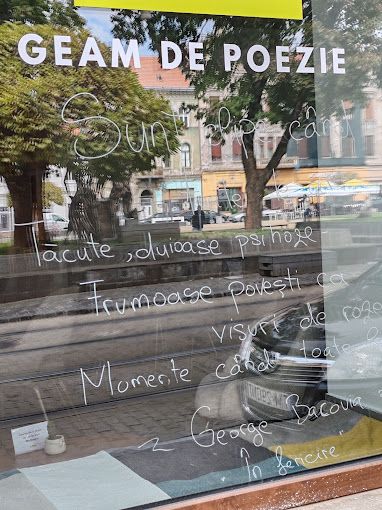 GEAM DE POEZIE
Sunt clipe când
Tăcute, duioase psihoze
Frumoase povești ca
visuri de roze
Momente când toate
~ George Bacovia
„În fericire"